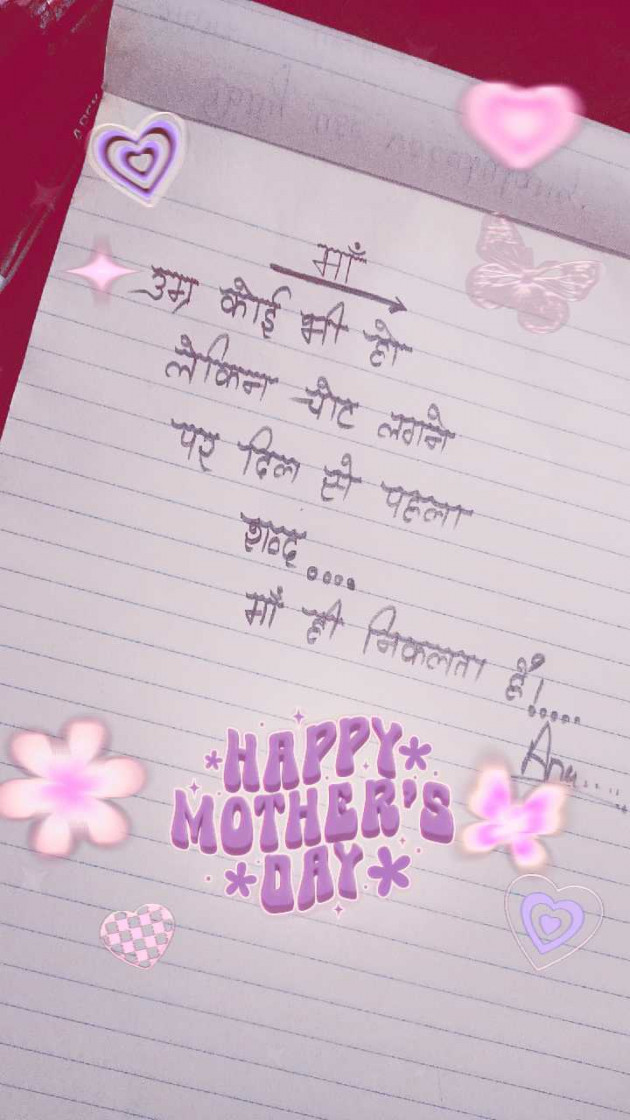 माँ
उम्र कोई भी हो
लेकिन चोट लगने
पर दिल से पहला
शब्द....
माँ ही निकलता है!.....
Anu.....
HAPPY
MOTHER'S
DAY